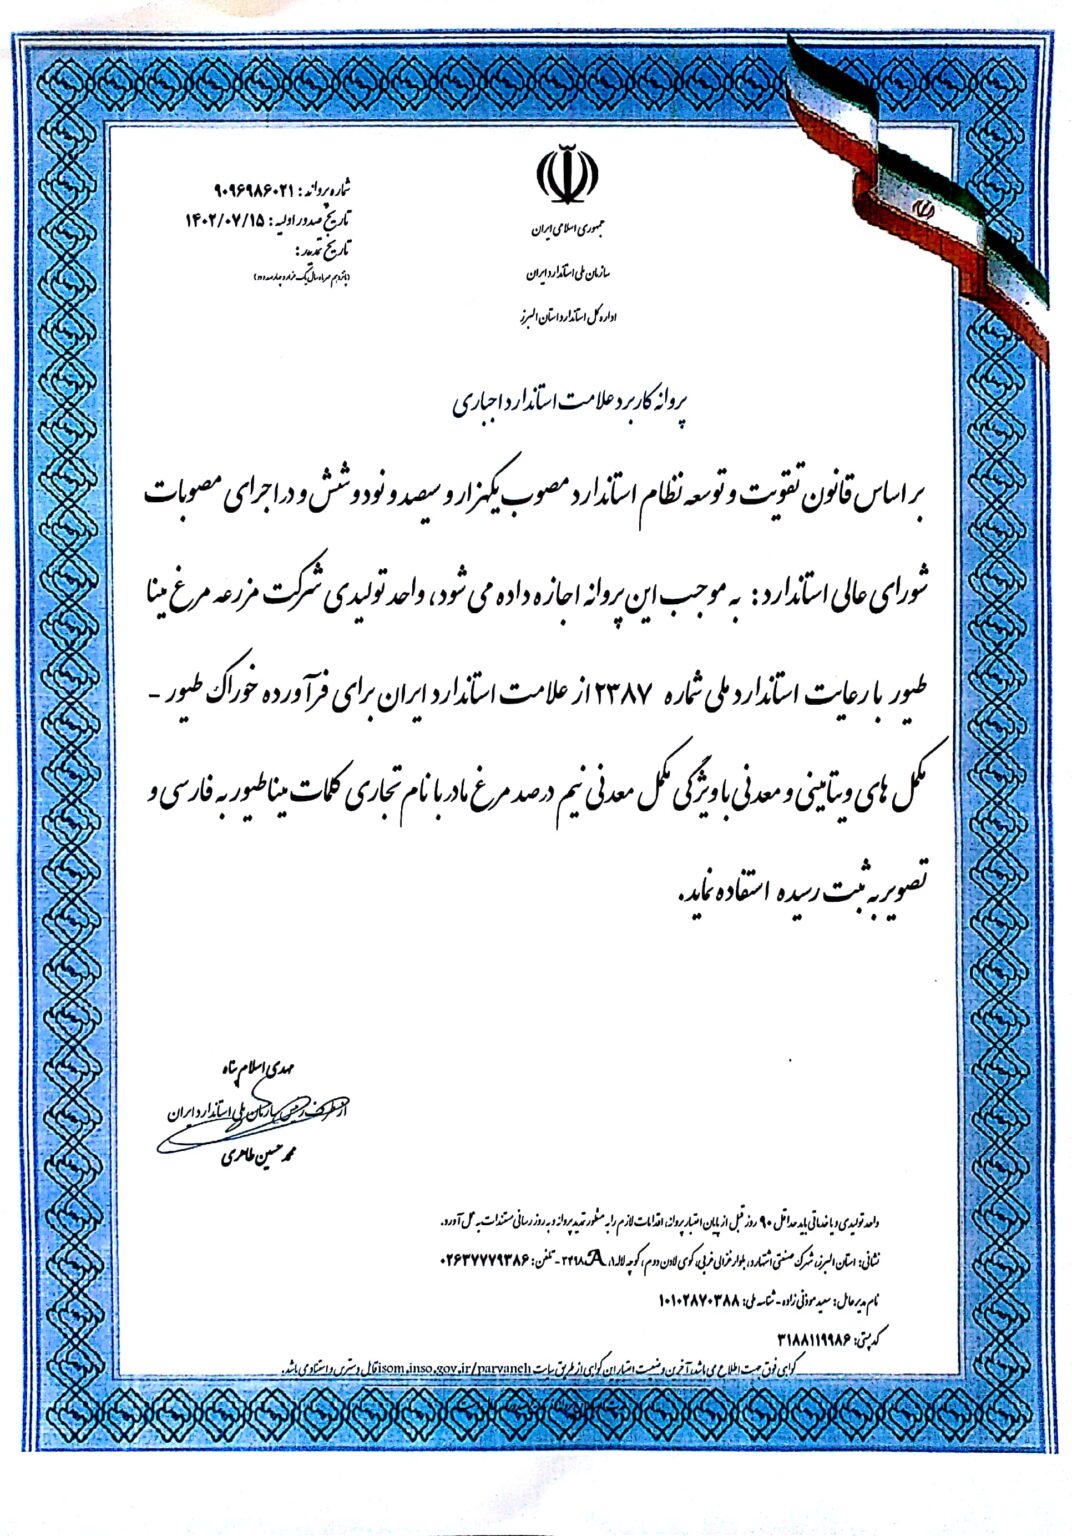 جمهوری اسلامی ایران
سازمان ملی استاندارد ایران
اداره کل استاندارد استان البرز
شماره پروانه : ۹۰۹۶۹۸۶۰۲۱
تاریخ صدور اولیه : ۱۴۰۲/۰۷/۱۵
تاریخ تمدید :
(پانزدهم مهر ماه سال یک هزار و چهارصد و دو)
پروانه کاربرد علامت استاندارد اجباری
بر اساس قانون تقویت و توسعه نظام استاندارد مصوب یکهزار و سیصد و نود و شش و در اجرای مصوبات
شورای عالی استاندارد : به موجب این پروانه اجازه داده می شود، واحد تولیدی شرکت مزرعه مرغ مینا
طیور با رعایت استاندارد ملی شماره ۲۳۸۷ از علامت استاندارد ایران برای فرآورده خوراک طیور -
مکمل های ویتامینی و معدنی با ویژگی مکمل معدنی نیم درصد مرغ مادر با نام تجاری کلمات مینا طیور به فارسی و
تصویر به ثبت رسیده استفاده نماید.
مهدی اسلام پناه
از طرف رئیس سازمان ملی استاندارد ایران
محمد حسین طاهری
واحد تولیدی و یا خدماتی باید حداقل ۹۰ روز قبل از پایان اعتبار پروانه، اقدامات لازم را به منظور تمدید پروانه و به روز رسانی مستندات به عمل آورد.
نشانی: استان البرز، شهرک صنعتی اشتهارد، بلوار غزالی غربی، کوی لادن دوم، کوچه لاله۱، ۲۴۹۸A - تلفن: ۰۲۶۳۷۷۷۹۳۸۶
نام مدیر عامل: سعید موذنی زاده - شناسه ملی: ۱۰۱۰۲۸۷۰۳۸۸
کد پستی: ۳۱۸۸۱۱۹۹۸۶
گواهی فوق جهت اطلاع می باشد، آخرین وضعیت اعتبار این گواهی از طریق سایت isom.inso.gov.ir/parvaneh قابل دسترس و استناد می باشد.